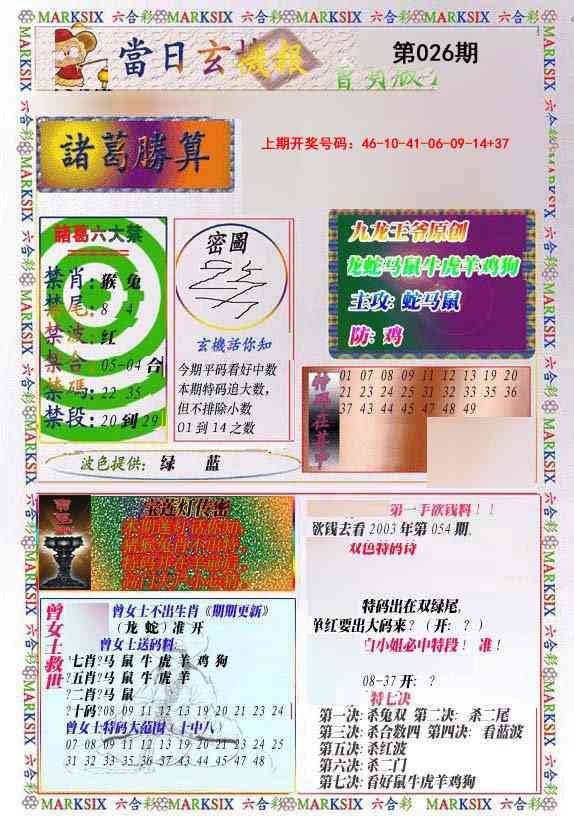 MARKSIX 六合彩 MARKSIX 六合彩 MARKSIX 六合彩 MARKSIX 六合彩 MARKSIX
當日玄機報
第026期
諸葛勝算
上期开奖号码：46-10-41-06-09-14+37
諸葛六大禁
禁肖：猴 兔
禁尾：8 4
禁波：红
禁合：05-04 合
禁碼：22 35
禁段：20 到 29
密圖
玄機話你知
今期平码看好中数
本期特码追大数，
但不排除小数
01 到 14 之数
九龙王爷原创
龙蛇马鼠牛虎羊鸡狗
主攻：蛇马鼠
防：鸡
01 07 08 09 11 12 13 19 20
21 23 24 25 31 32 33 35 36
37 43 44 45 47 48 49
波色提供：绿 蓝
宝莲灯传密
第一手欲钱料！！
欲钱去看 2003 年第 054 期.
双色特码诗
特码出在双绿尾，
单红要出大码来？（开：？）
白小姐必中特段！ 准！
08-37 开：？
特七决
第一决：杀兔双 第二决：杀二尾
第三决：杀合数四 第四决：看蓝波
第五决：杀红波
第六决：杀二门
第七决？看好鼠牛虎羊鸡狗
曾女士救世
曾女士不出生肖《期期更新》
（龙 蛇）准 开
曾女士送码料
?七肖?马 鼠 牛 虎 羊 鸡 狗
?五肖?马 鼠 牛 虎 羊
?二肖?马 鼠
?十码?08 09 11 12 13 19 20 21 23 24
曾女士特码大范围（十中八）
07 08 09 11 12 13 19 20 21 23 24 25
31 32 33 35 36 37 43 44 45 47 48
MARKSIX 六合彩 MARKSIX 六合彩 MARKSIX 六合彩 MARKSIX 六合彩 MARKSIX